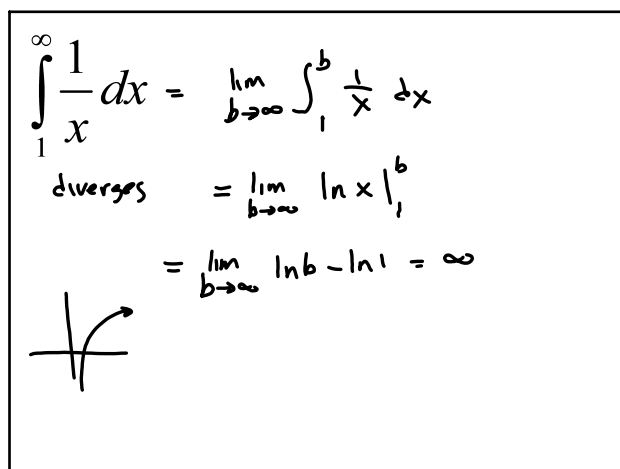 ∫₁^∞ 1/x dx = lim b→∞ ∫₁ᵇ 1/x dx
diverges = lim b→∞ ln x |₁ᵇ
= lim b→∞ ln b − ln 1 = ∞